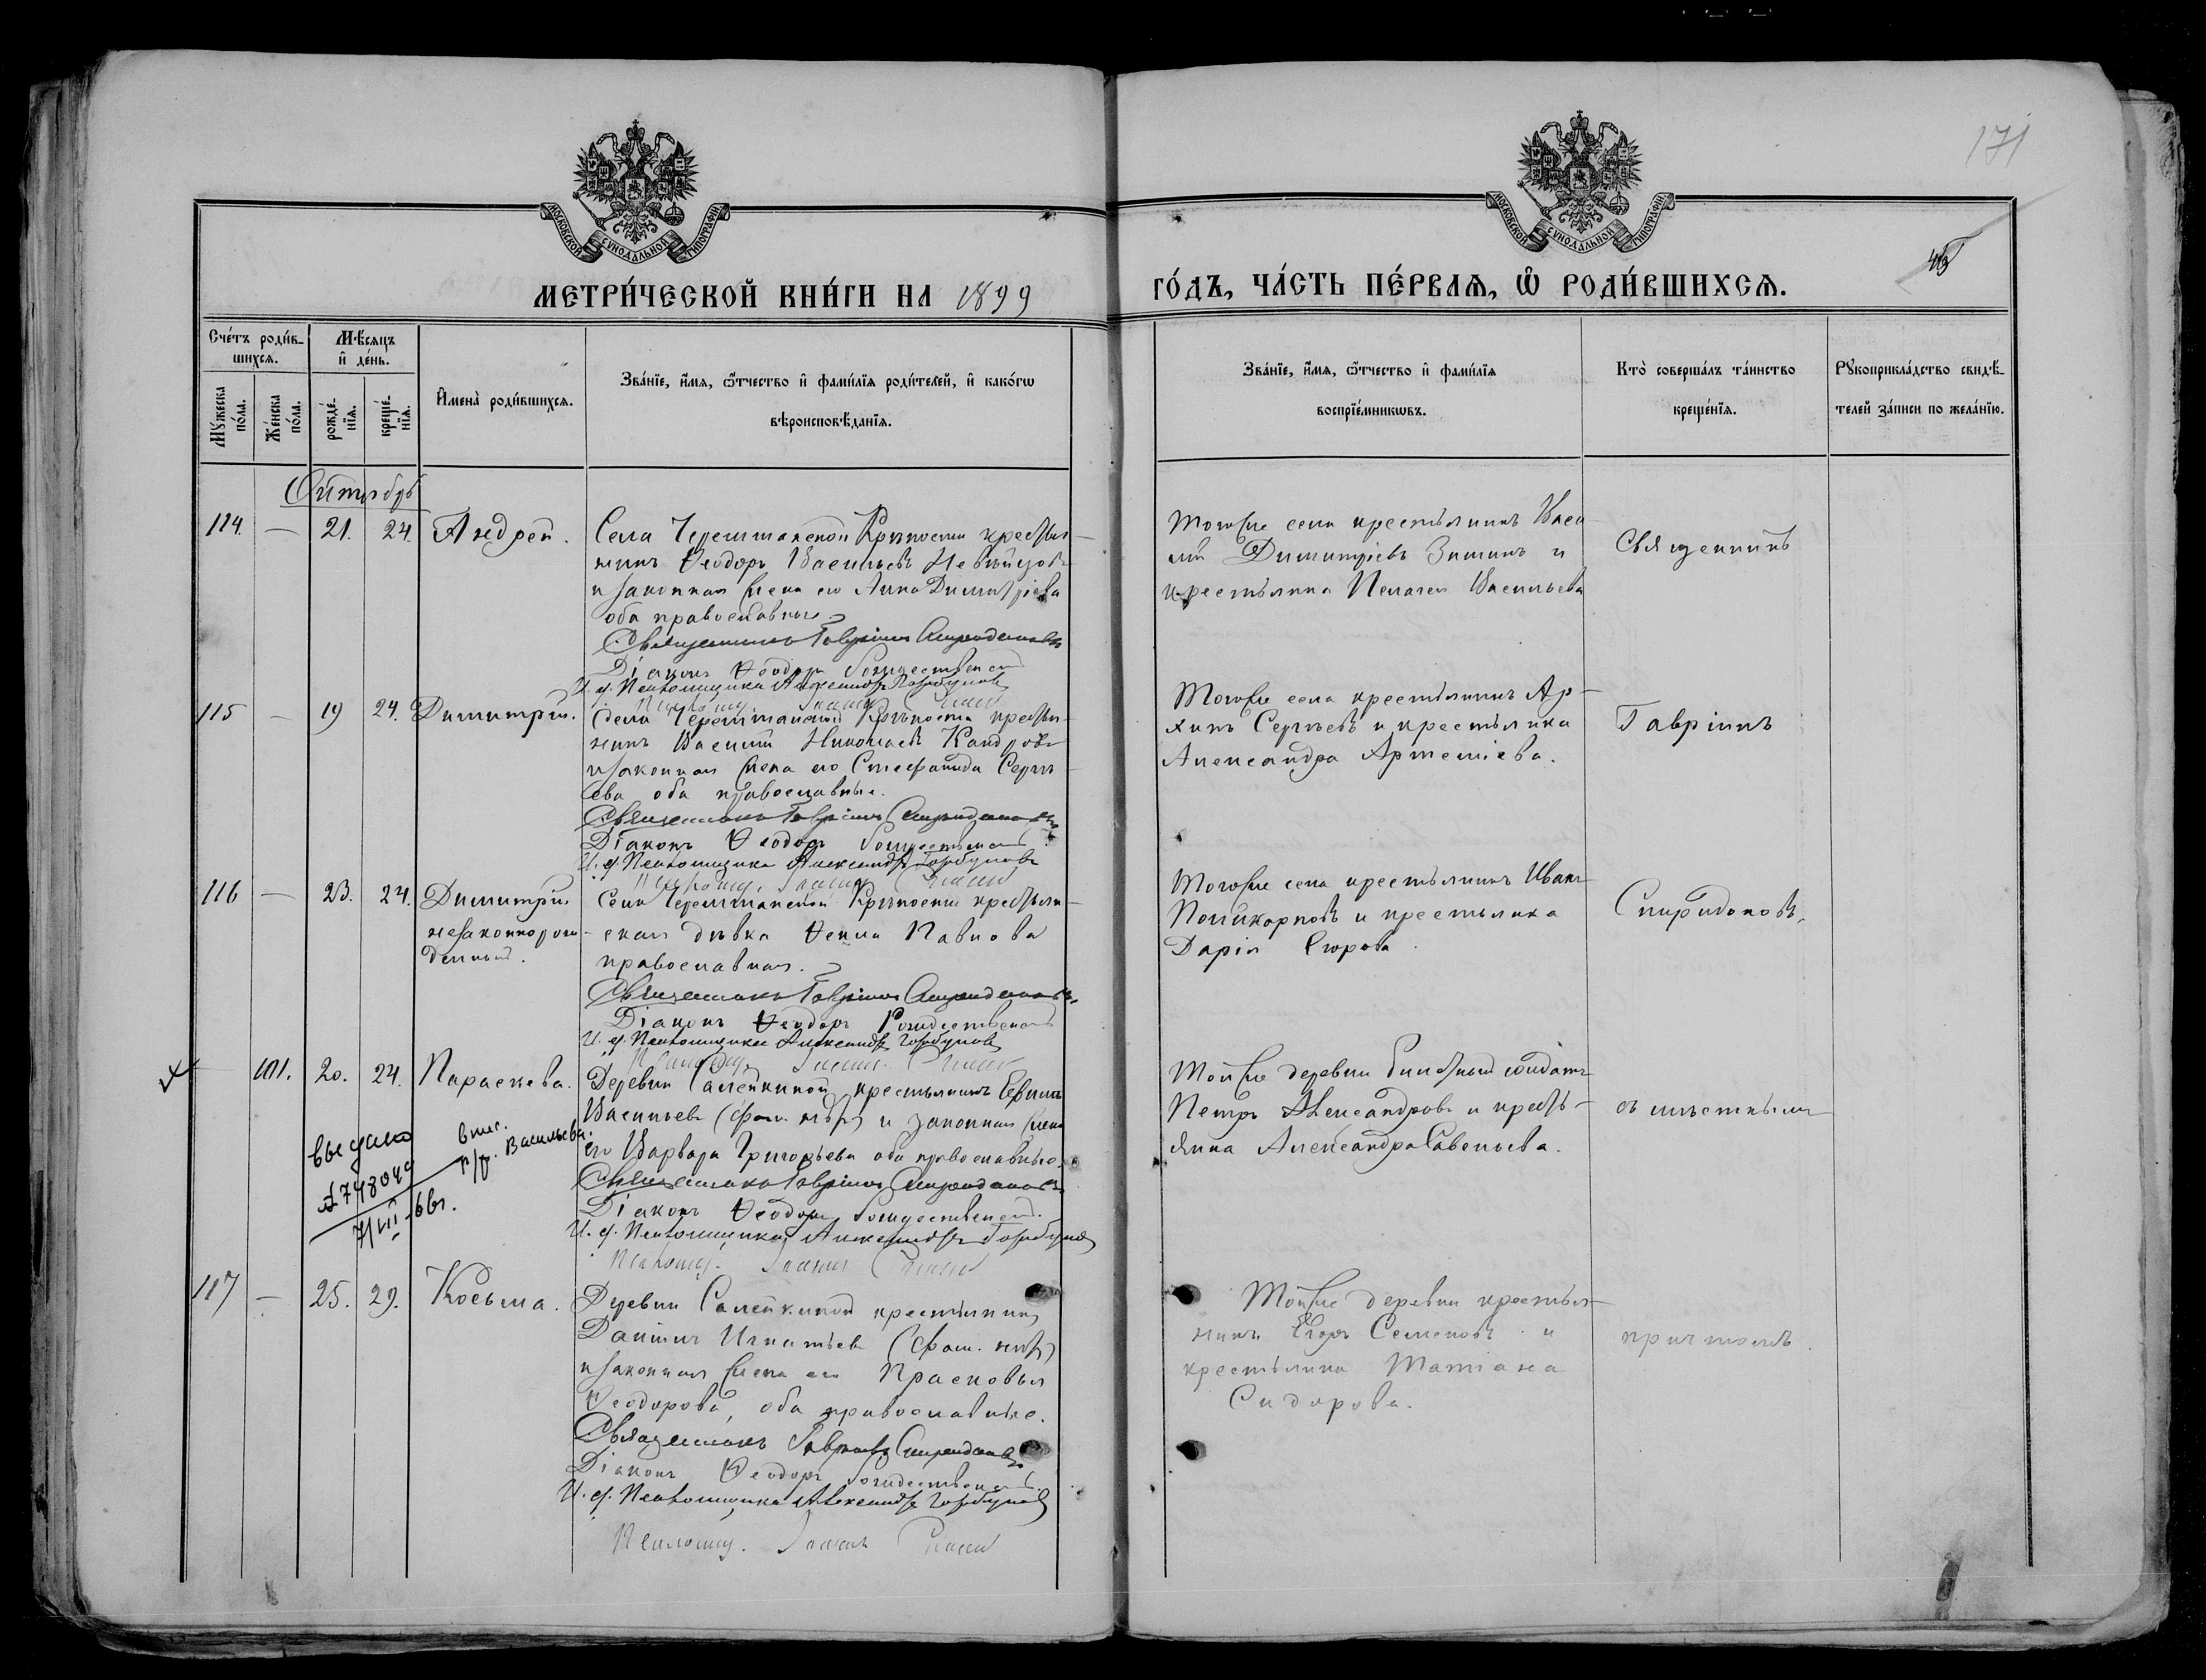 171
МОСКОВСКОЙ СУНОДАЛЬНОЙ ТИПОГРАФІИ
МОСКОВСКОЙ СУНОДАЛЬНОЙ ТИПОГРАФІИ
МЕТРИ́ЧЕСКОЙ КНИ́ГИ НА 1899
ГО́ДЪ, ЧА́СТЬ ПЕ́РВАѦ, Ѽ РОДИ́ВШИХСѦ.
Сче́тъ роди́в-
шихсѧ.
Мѣ́сѧцъ
и҆ де́нь.
Мꙋ́жеска
по́ла.
Же́нска
по́ла.
рожде́-
нїѧ.
креще́-
нїѧ.
И҆мена̀ роди́вшихсѧ.
Зва́нїе, и҆́мѧ, ѻ҆́тчество и҆ фами́лїѧ роди́телей, и҆ како́гѡ
вѣроисповѣ́данїѧ.
Зва́нїе, и҆́мѧ, ѻ҆́тчество и҆ фами́лїѧ
воспрїе́мникѡвъ.
Кто̀ соверша́лъ та́инство
креще́нїѧ.
Рꙋкоприкла́дство свидѣ́-
телей за́писи по жела́нїю.
Октябрь
114. — 21. 24. Андрей.
Села Черемшанской Крѣпости крестья-
нинъ Ѳеодоръ Васильевъ
и законная жена его Анна Димитріева
оба православные
Священникъ Гавріилъ Спиридоновъ
Діаконъ Ѳеодоръ Рождественскій
И. д. Псаломщика Александръ Горбуновъ
Тогоже села крестьянинъ Васи-
лій Димитріевъ Зиминъ и
крестьянка Пелагея Васильева
Священникъ
115 — 19 24. Димитрій.
Села Черемшанской Крѣпости крестья-
нинъ Василій Николаевъ
и законная жена его Стефанида Сергѣ-
ева оба православные.
Священникъ Гавріилъ Спиридоновъ
Діаконъ Ѳеодоръ Рождественскій
И. д. Псаломщика Александръ Горбуновъ
Тогоже села крестьянинъ Ар-
хипъ Сергѣевъ и крестьянка
Александра Артеміева.
Гавріилъ
116 — 23. 24. Димитрій
незаконнорож-
денный.
Села Черемшанской Крѣпости крестьян-
ская дѣвка Ѳекла Павлова
православная.
Священникъ Гавріилъ Спиридоновъ.
Діаконъ Ѳеодоръ Рождественскій
И. д. Псаломщика Александръ Горбуновъ
Тогоже села крестьянинъ Иванъ
Поликарповъ и крестьянка
Дарія Егорова.
Спиридоновъ,
101. 20. 24. Параскева.
Деревни Салейкиной крестьянинъ Ефимъ
Васильевъ (фам. нѣтъ) и законная жена
его Варвара Григорьева оба православные.
Священникъ Гавріилъ Спиридоновъ
Діаконъ Ѳеодоръ Рождественскій.
И. д. Псаломщика Александръ Горбуновъ
Псаломщ.
Тойже деревни билетный солдатъ
Петръ Александровъ и кресть-
янка Александра Савельева.
съ мѣстнымъ
выдано
748049
7/VII-66г.
Васильева.
117 — 25. 29. Косьма.
Деревни Салейкиной крестьянинъ
Даніилъ Игнатьевъ (фам. нѣтъ)
и законная жена его Прасковья
Ѳеодорова, оба православные.
Священникъ Гавріилъ Спиридоновъ
Діаконъ Ѳеодоръ Рождественскій.
И. д. Псаломщика Александръ Горбуновъ
Псаломщ.
Тойже деревни крестья-
нинъ Егоръ Семеновъ и
крестьянка Татіана
Сидорова.
причтомъ.